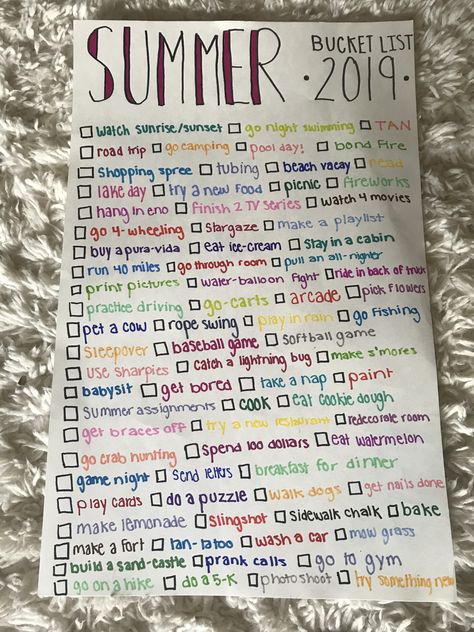 SUMMER BUCKET LIST
• 2019 •
watch sunrise/sunset go night swimming TAN
road trip go camping pool day! bond fire
Shopping spree tubing beach vacay read
lake day try a new food picnic fireworks
hang in eno finish 2 TV series watch 4 movies
go 4-wheeling Stargaze make a playlist
buy a pura-vida eat ice-cream Stay in a cabin
run 40 miles go through room pull an all-nighter
print pictures water-balloon fight ride in back of truck
practice driving go-carts arcade pick flowers
pet a cow rope swing play in rain go fishing
Sleepover baseball game softball game
use sharpies catch a lightning bug make s'mores
babysit get bored take a nap paint
Summer assignments cook eat cookie dough
get braces off try a new restaurant redecorate room
go crab hunting spend 100 dollars eat watermelon
game night send letters breakfast for dinner
play cards do a puzzle walk dogs get nails done
make lemonade slingshot sidewalk chalk bake
make a fort tan-tatoo wash a car mow grass
build a sand-castle prank calls go to gym
go on a hike do a 5-K photoshoot try something new